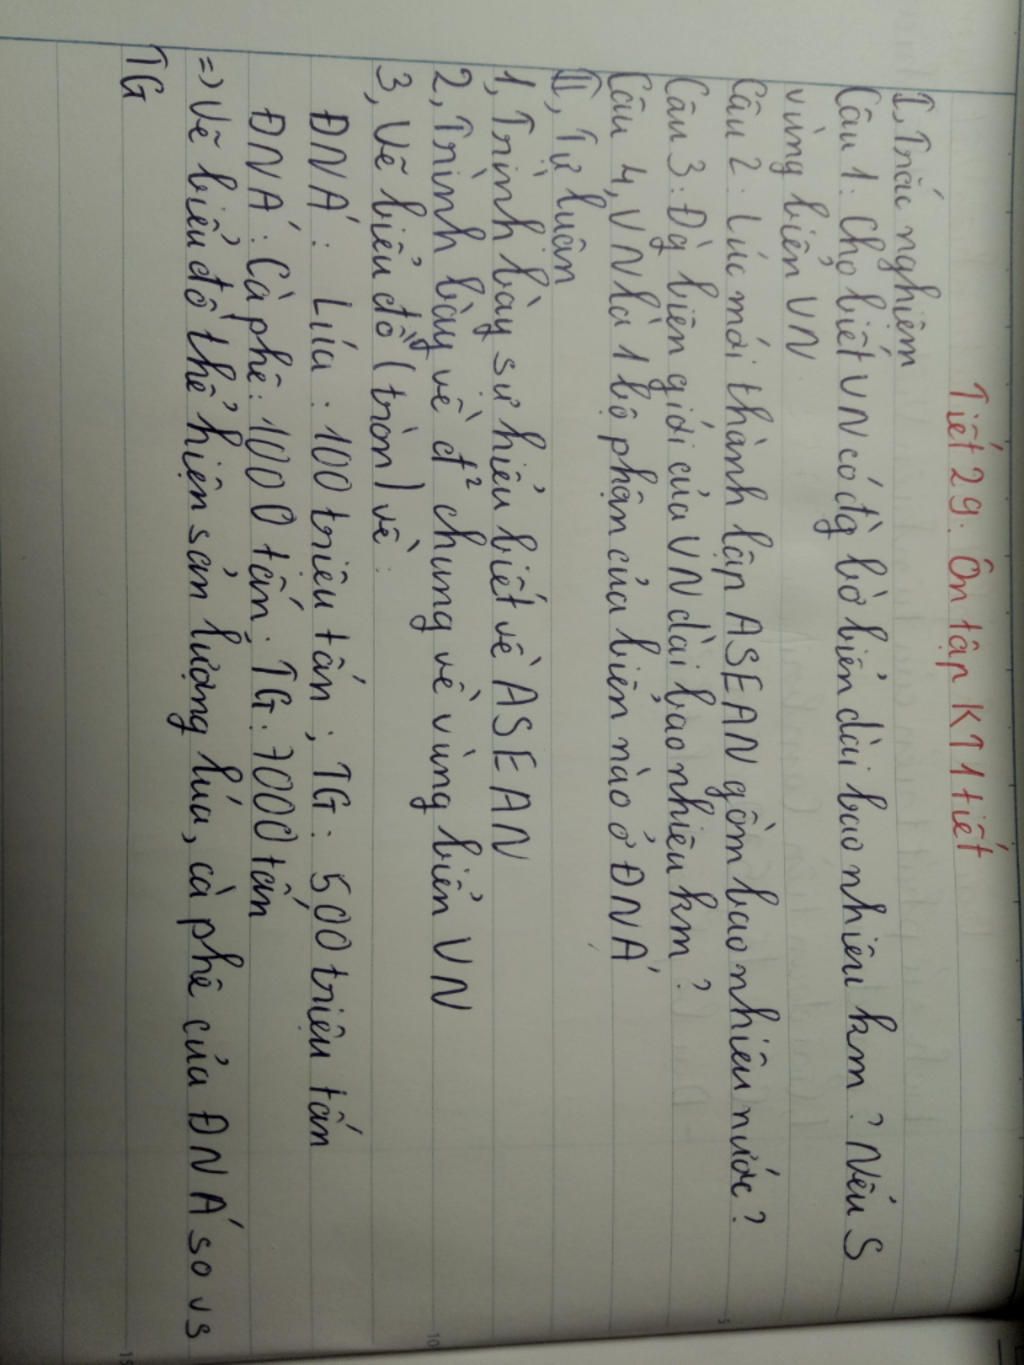 Tiết 29: Ôn tập KT 1 tiết
I, Trắc nghiệm
Câu 1: Cho biết VN có đg bờ biển dài bao nhiêu km? Nêu S
vùng biển VN
Câu 2: Lúc mới thành lập ASEAN gồm bao nhiêu nước?
Câu 3: Đg biên giới của VN dài bao nhiêu km?
Câu 4, VN là 1 bộ phận của biển nào ở ĐNÁ
II, Tự luận
1, Trình bày sự hiểu biết về ASEAN
2, Trình bày về đ² chung về vùng biển VN
3, Vẽ biểu đồ (tròn) về:
ĐNÁ: Lúa: 100 triệu tấn; TG: 500 triệu tấn
ĐNÁ: Cà phê: 1000 tấn; TG: 7000 tấn
=> Vẽ biểu đồ thể hiện sản lượng lúa, cà phê của ĐNÁ so vs
TG
5
10
15